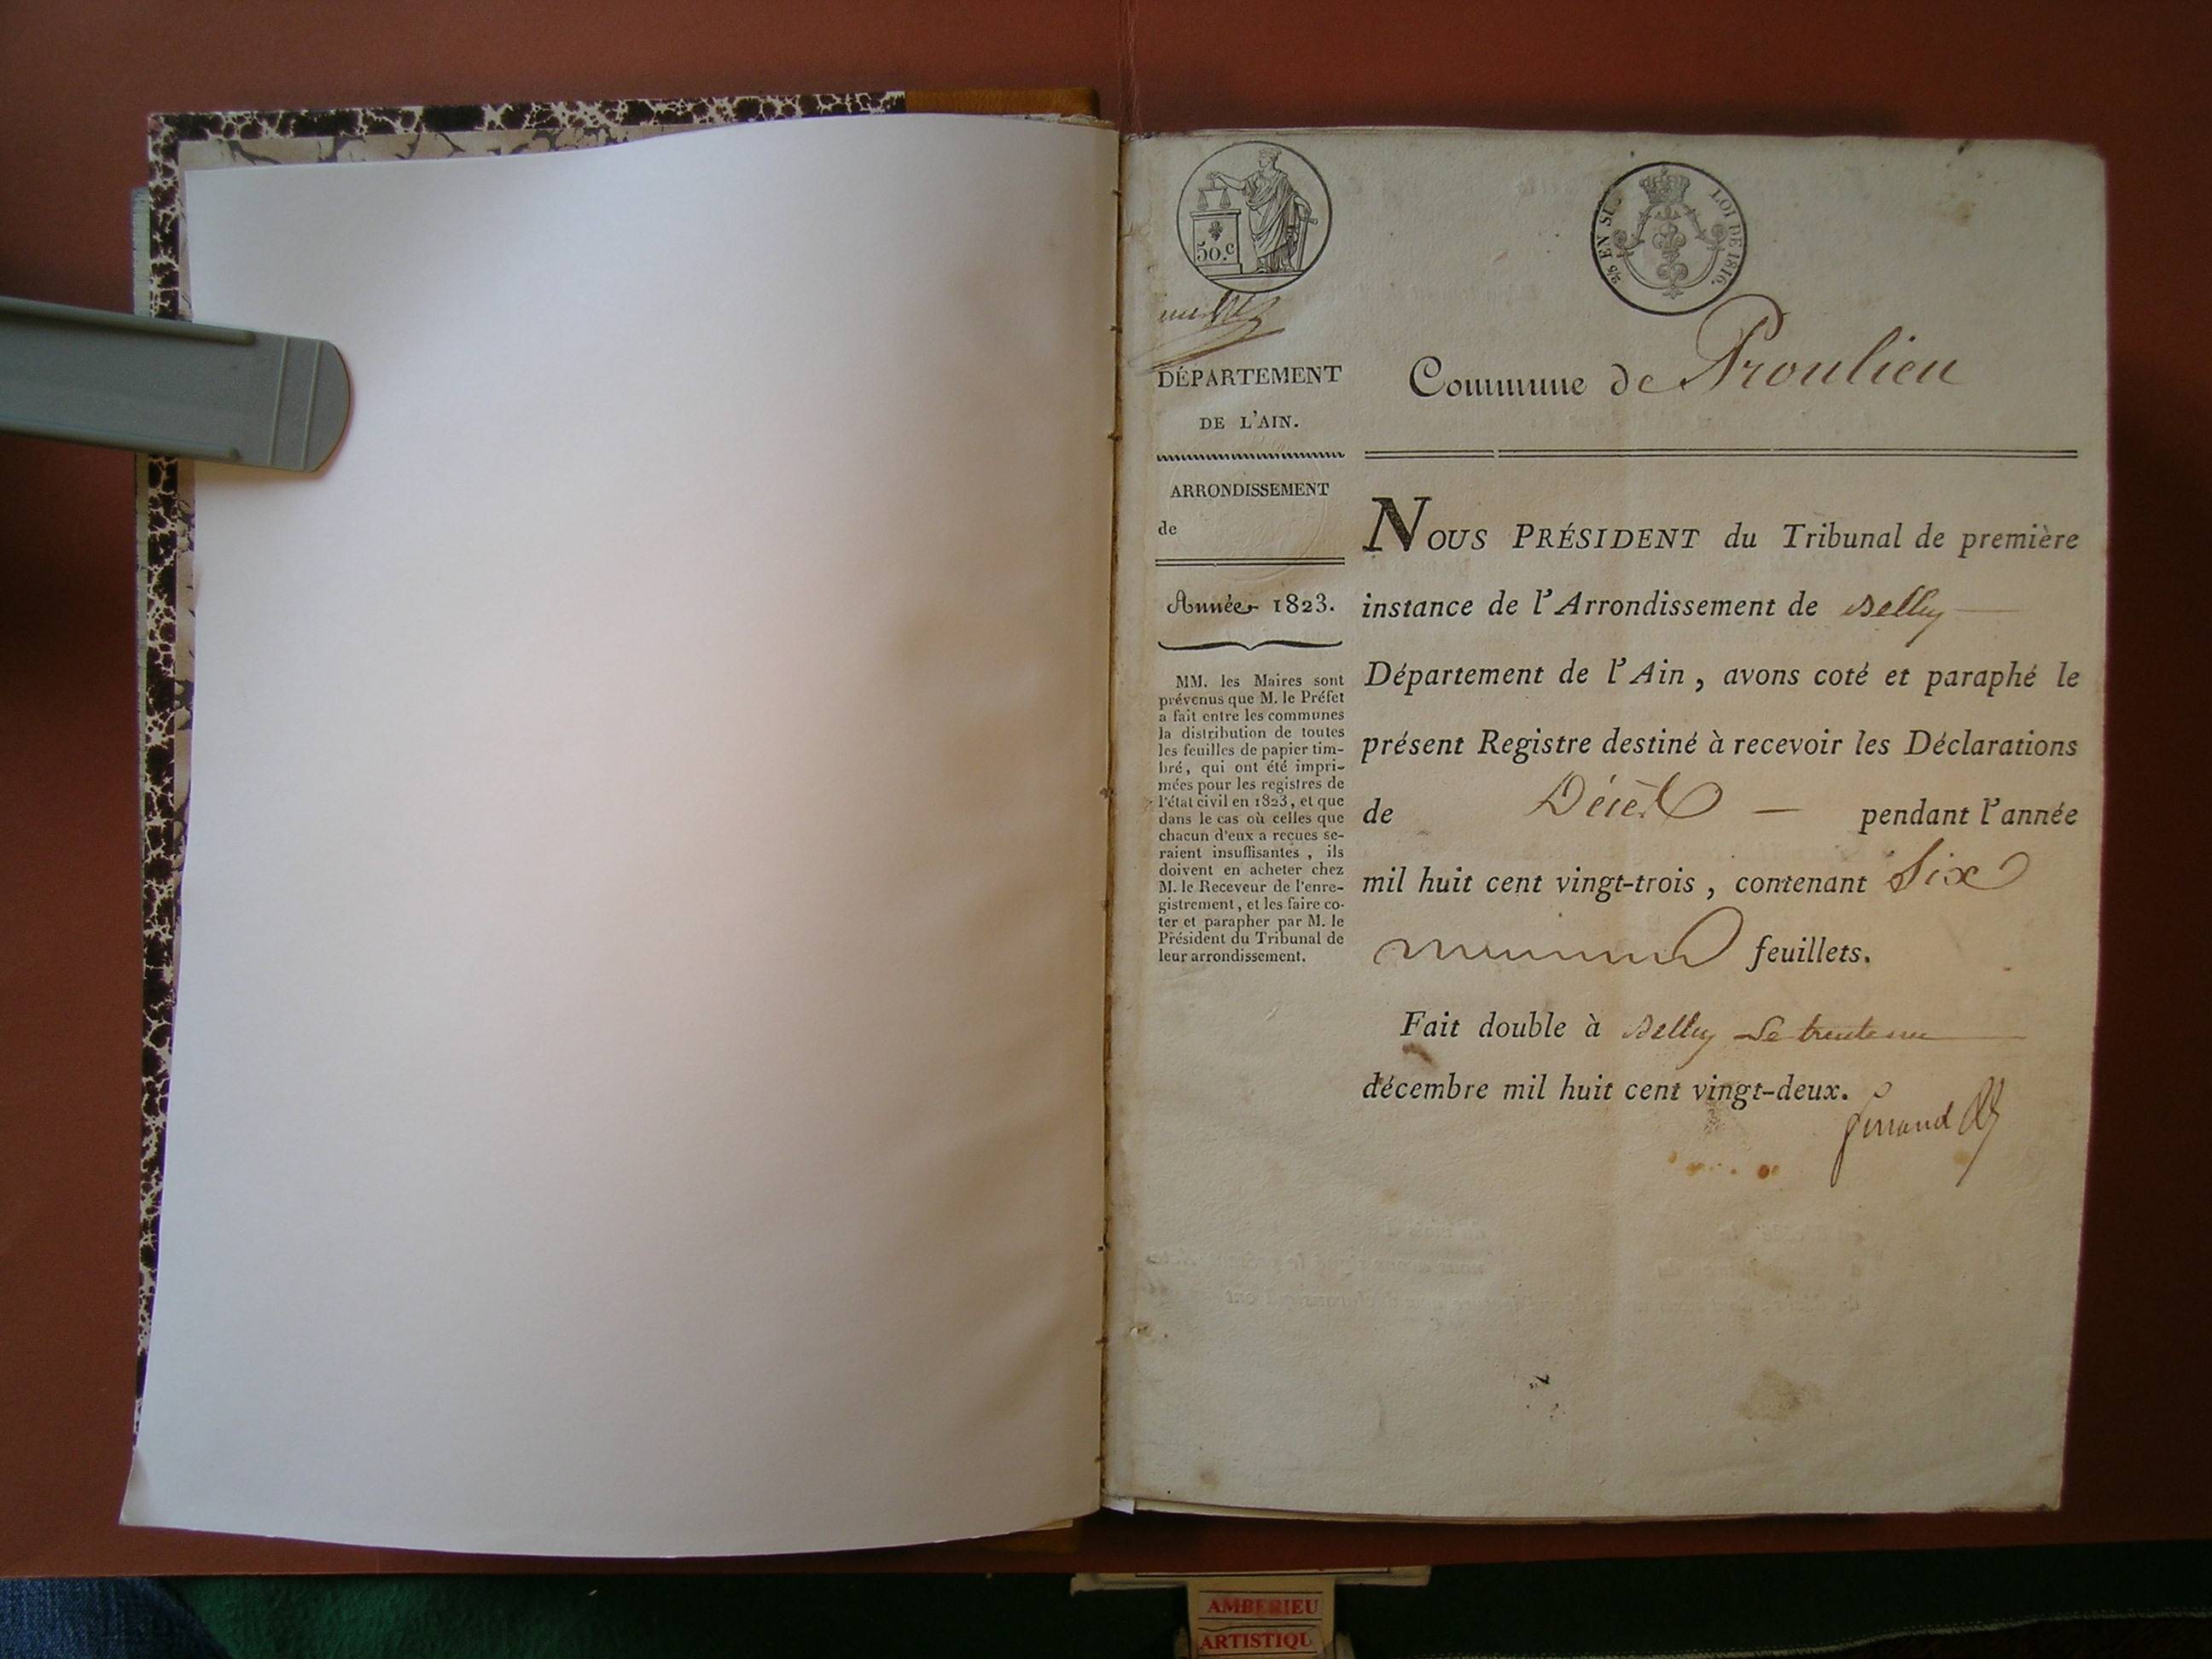 50.c
2/5 EN SUS
LOI DE 1816.
DÉPARTEMENT
DE L'AIN.
ARRONDISSEMENT
de
Année 1823.
MM. les Maires sont
prévenus que M. le Préfet
a fait entre les communes
la distribution de toutes
les feuilles de papier tim-
bré, qui ont été impri-
mées pour les registres de
l'état civil en 1823, et que
dans le cas où celles que
chacun d'eux a reçues se-
raient insuffisantes, ils
doivent en acheter chez
M. le Receveur de l'enre-
gistrement, et les faire co-
ter et parapher par M. le
Président du Tribunal de
leur arrondissement.
Commune de Proulieu
NOUS PRÉSIDENT du Tribunal de première
instance de l'Arrondissement de Belley
Département de l'Ain, avons coté et paraphé le
présent Registre destiné à recevoir les Déclarations
de Décès — pendant l'année
mil huit cent vingt-trois, contenant Six
feuillets.
Fait double à Belley Le trente un
décembre mil huit cent vingt-deux.
AMBERIEU
ARTISTIQU